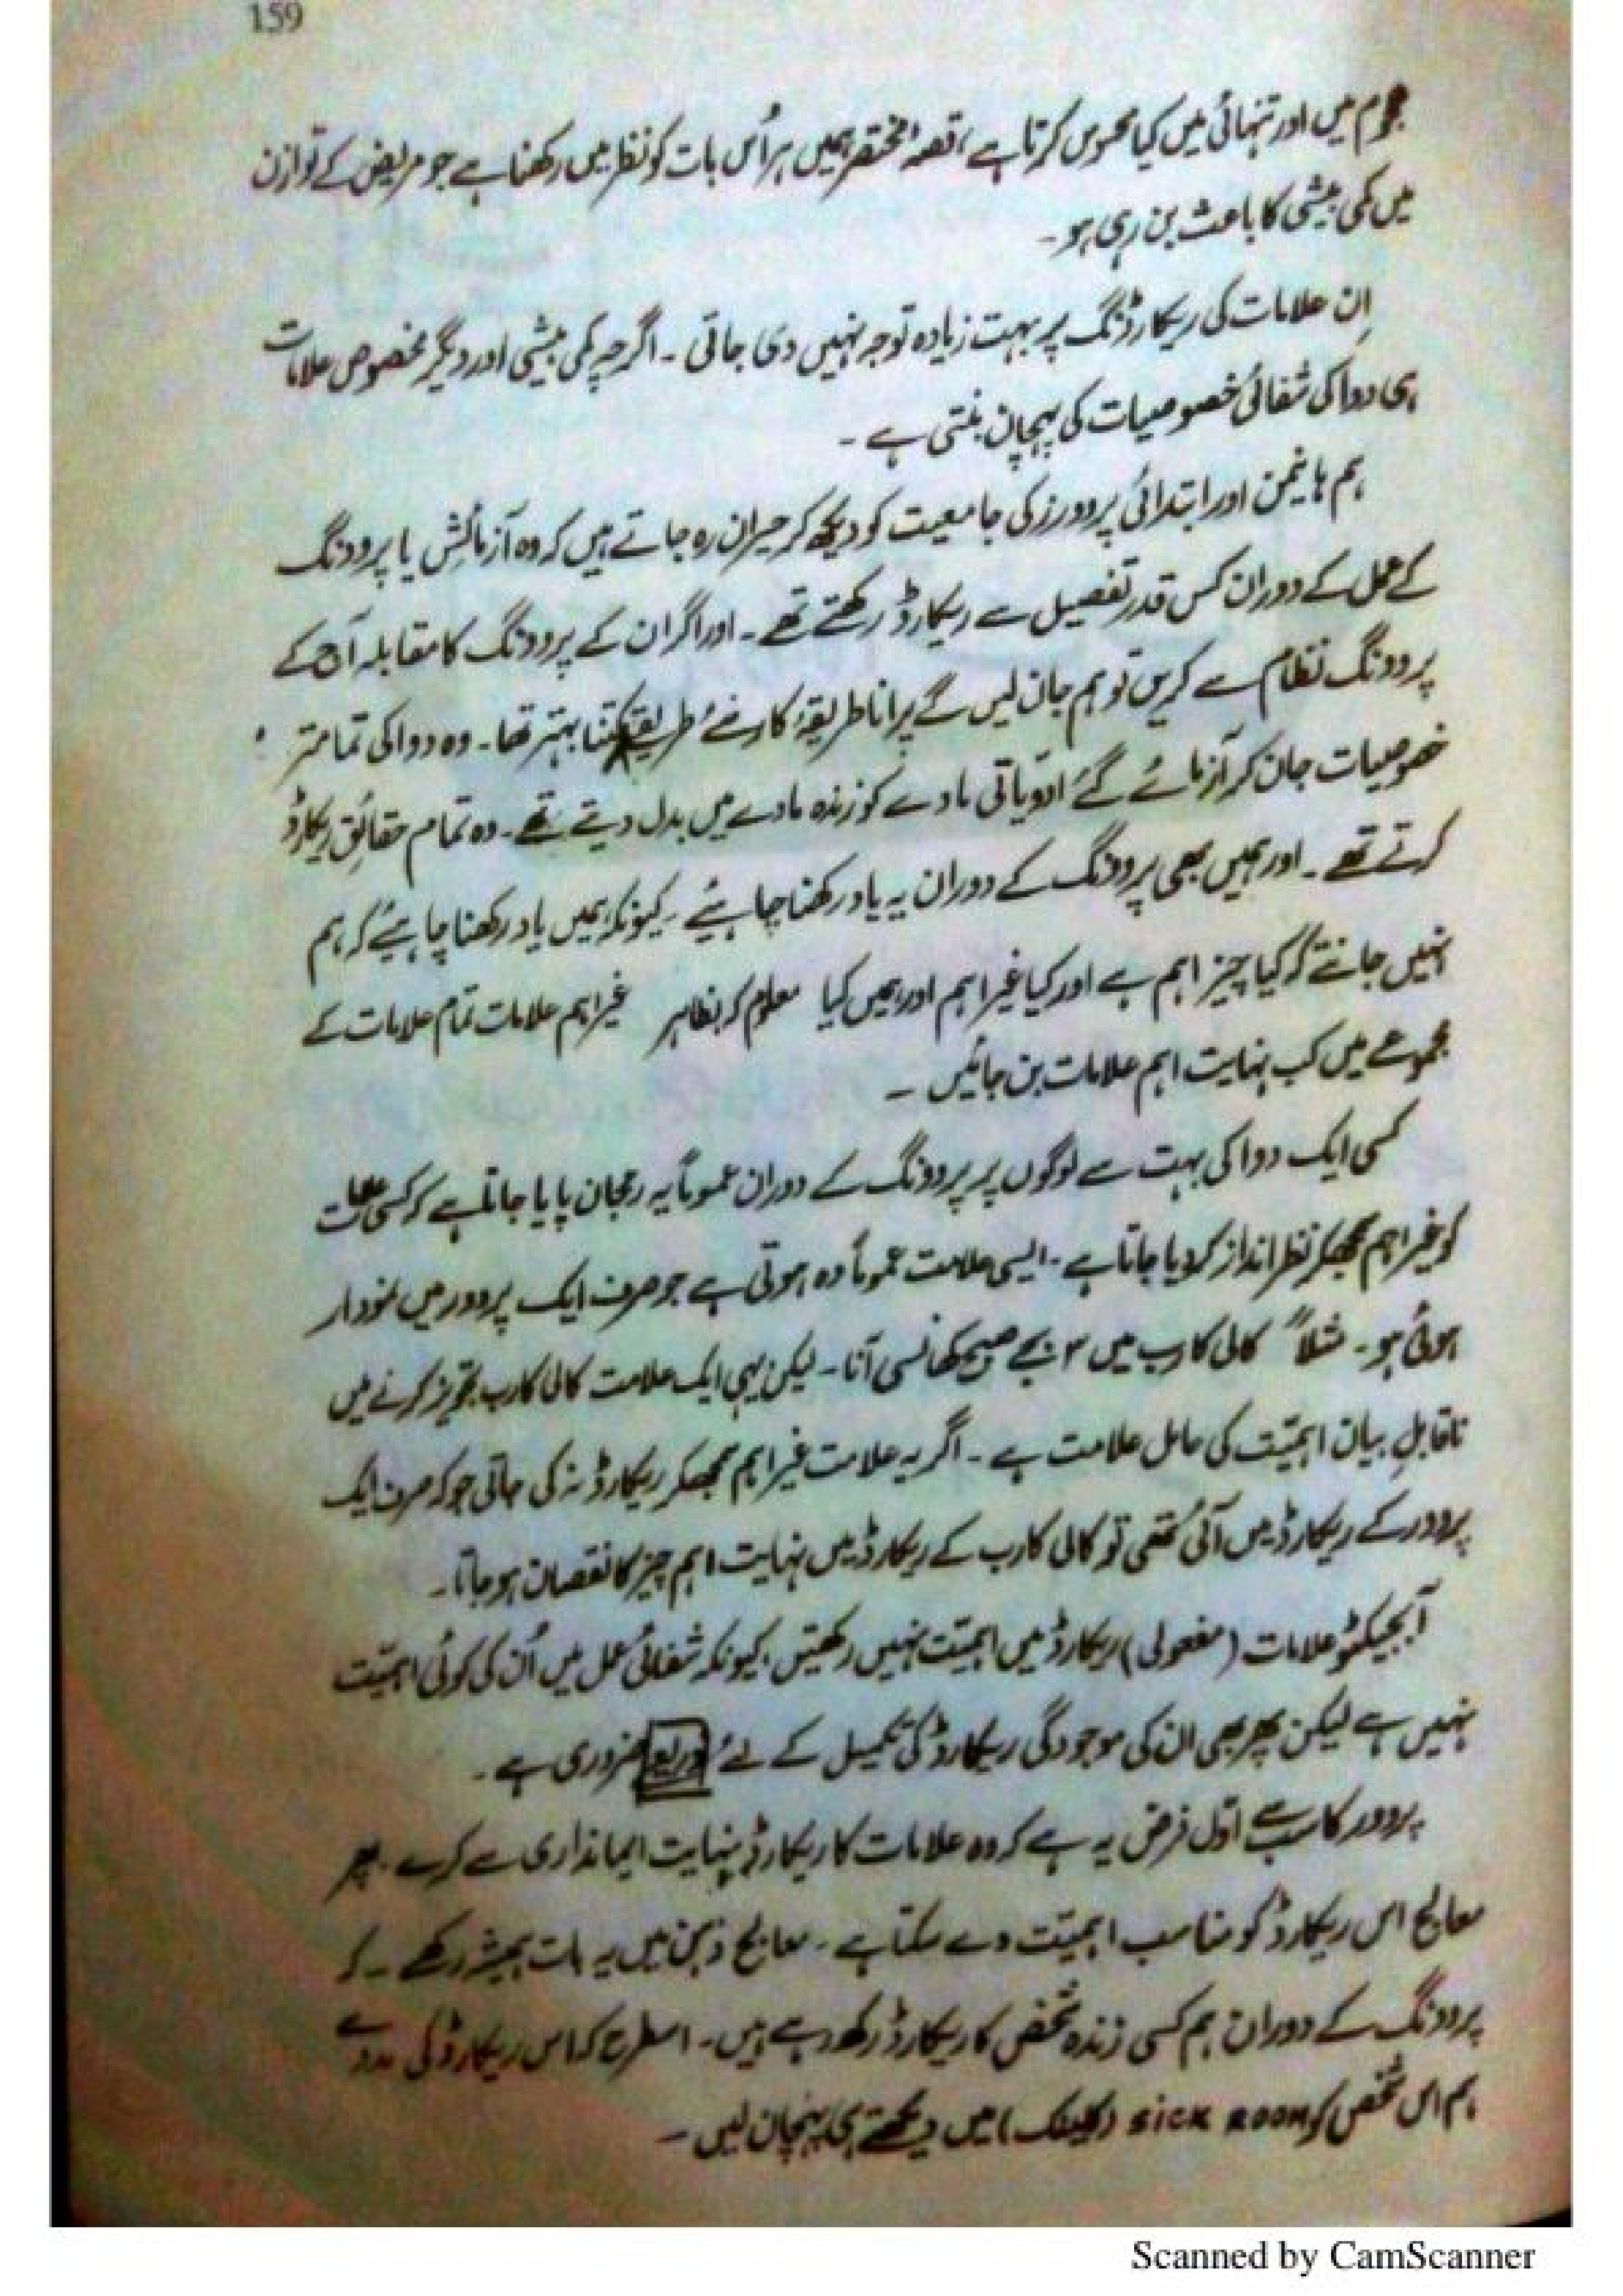 159
ہجوم میں اور تنہائی میں کیا محسوس کرتا ہے، قصۂ مختصر ہمیں ہر اُس بات کو نظر میں رکھنا ہے جو مریض کے توازن
میں کمی بیشی کا باعث بن رہی ہو۔
اِن علامات کی ریکارڈنگ پر بہت زیادہ توجہ نہیں دی جاتی ۔ اگرچہ کمی بیشی اور دیگر مخصوص علامات
ہی دوا کی شفائی خصوصیات کی پہچان بنتی ہے ۔
ہم ہانیمن اور ابتدائی پروورز کی جامعیت کو دیکھ کر حیران رہ جاتے ہیں کہ وہ آزمائش یا پروونگ
کے عمل کے دوران کس قدر تفصیل سے ریکارڈ رکھتے تھے ۔ اور اگر ان کے پروونگ کا مقابلہ آج کے
پروونگ نظام سے کریں تو ہم جان لیں گے پرانا طریقۂ کار نئے طریقے کتنا بہتر تھا۔ وہ دوا کی تمامتر
خصوصیات جان کر آزمائے گئے ادویاتی مادے کو زندہ مادے میں بدل دیتے تھے۔ وہ تمام حقائق ریکارڈ
کرتے تھے ۔ اور ہمیں بھی پروونگ کے دوران یہ یاد رکھنا چاہیئے ۔ کیونکہ ہمیں یاد رکھنا چاہیئے کہ ہم
نہیں جانتے کہ کیا چیز اہم ہے اور کیا غیر اہم اور ہمیں کیا معلوم کہ بظاہر غیر اہم علامات تمام علامات کے
مجموعے میں کب نہایت اہم علامات بن جائیں ۔
کسی ایک دوا کی بہت سے لوگوں پر پروونگ کے دوران عموماً یہ رجحان پایا جاتا ہے کہ کسی علامت
کو غیر اہم سمجھکر نظر انداز کر دیا جاتا ہے ۔ ایسی علامت عموماً وہ ہوتی ہے جو صرف ایک پروور میں نمودار
ہوئی ہو۔ مثلاً کالی کارب میں ۳ بجے صبح کھانسی آنا ۔ لیکن یہی ایک علامت کالی کارب تجویز کرنے میں
ناقابلِ بیان اہمیّت کی حامل علامت ہے ۔ اگر یہ علامت غیر اہم سمجھکر ریکارڈ نہ کی جاتی جو کہ صرف ایک
پروور کے ریکارڈ میں آئی تھی تو کالی کارب کے ریکارڈ میں نہایت اہم چیز کا نقصان ہو جاتا۔
آبجیکٹو علامات (مفعولی) ریکارڈ میں اہمیّت نہیں رکھتیں، کیونکہ شفائی عمل میں اُن کی کوئی اہمیّت
نہیں ہے لیکن پھر بھی ان کی موجودگی ریکارڈ کی تکمیل کے لئے ضروری ہے ۔
پروور کا سب سے اوّل فرض یہ ہے کہ وہ علامات کا ریکارڈ نہایت ایمانداری سے کرے ۔ پھر
معالج اس ریکارڈ کو مناسب اہمیّت دے سکتا ہے ۔ معالج ذہن میں یہ بات ہمیشہ رکھے ۔ کہ
پروونگ کے دوران ہم کسی زندہ شخص کا ریکارڈ رکھ رہے ہیں۔ اسطرح کہ اس ریکارڈ کی مدد سے
ہم اس شخص کو SICK ROOM (کلینک) میں دیکھتے ہی پہچان لیں ۔
Scanned by CamScanner